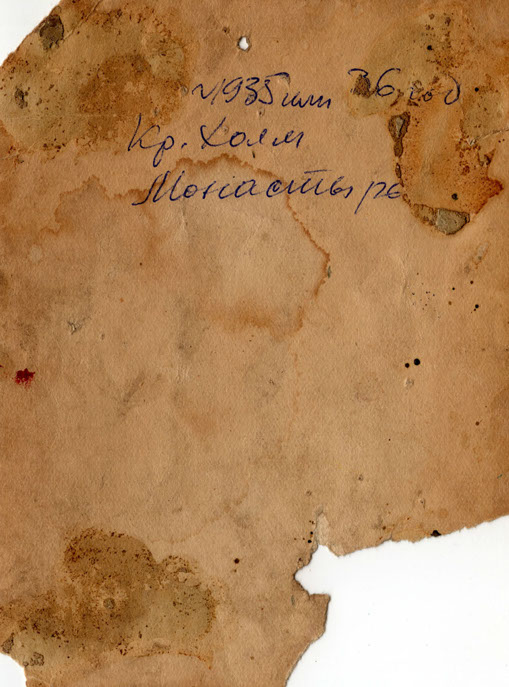 ~1935 или 36 год
Кр. Холм
Монастырь